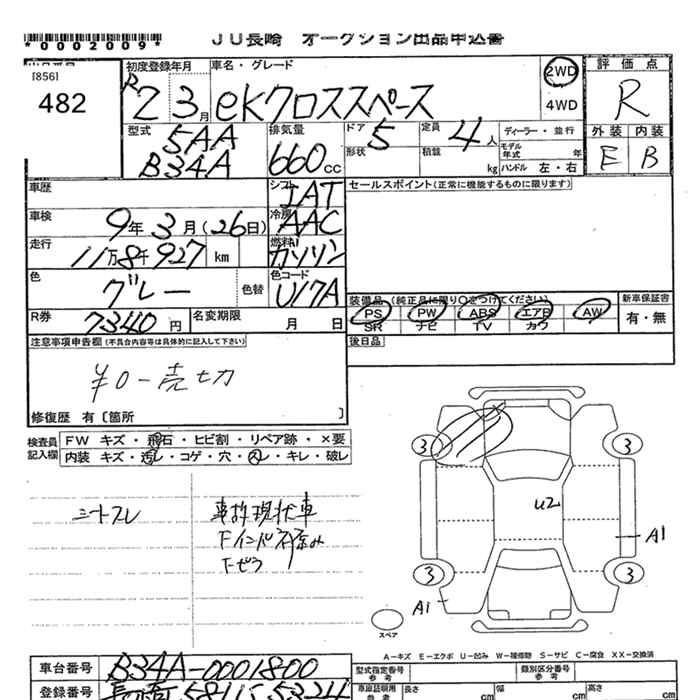 *0002009* ＪＵ長崎 オークション出品申込書
[856]
482
初度登録年月 R2 3月
車名・グレード eKクロススペース
2WD
4WD
評価点 R
外装 内装
E B
型式 5AA B34A
排気量 660cc
ドア 5
形状
定員 4人
積載 kg
ディーラー・並行
モデル年式 年
ハンドル 左・右
車歴
シフト IAT
セールスポイント(正常に機能するものに限ります)
車検 9年3月(26日)
冷房 AAC
走行 11万8千927 km
燃料 ガソリン
色 グレー 色替
色コード U17A
装備品(純正品に限り○をつけてください)
新車保証書
PS PW ABS エアB AW
有・無
SR ナビ TV カワ
R券 7340円
名変期限 月 日
後日品
注意事項申告欄(不具合内容等は具体的に記入して下さい)
¥0-売切
修復歴 有〔箇所 〕
検査員記入欄
FW キズ・飛石・ヒビ割・リペア跡・×要
内装 キズ・汚レ・コゲ・穴・スレ・キレ・破レ
3 3
シートスレ
事故現状車
U2
A1
3 3
A1
スペア
A－キズ E－エクボ U－凹み W－補修跡 S－サビ C－腐食 XX－交換済
車台番号 B34A-0001800
型式指定番号 参考
類別区分番号 参考
登録番号 長崎
車庫証明用 参考
長さ cm
幅 cm
高さ cm